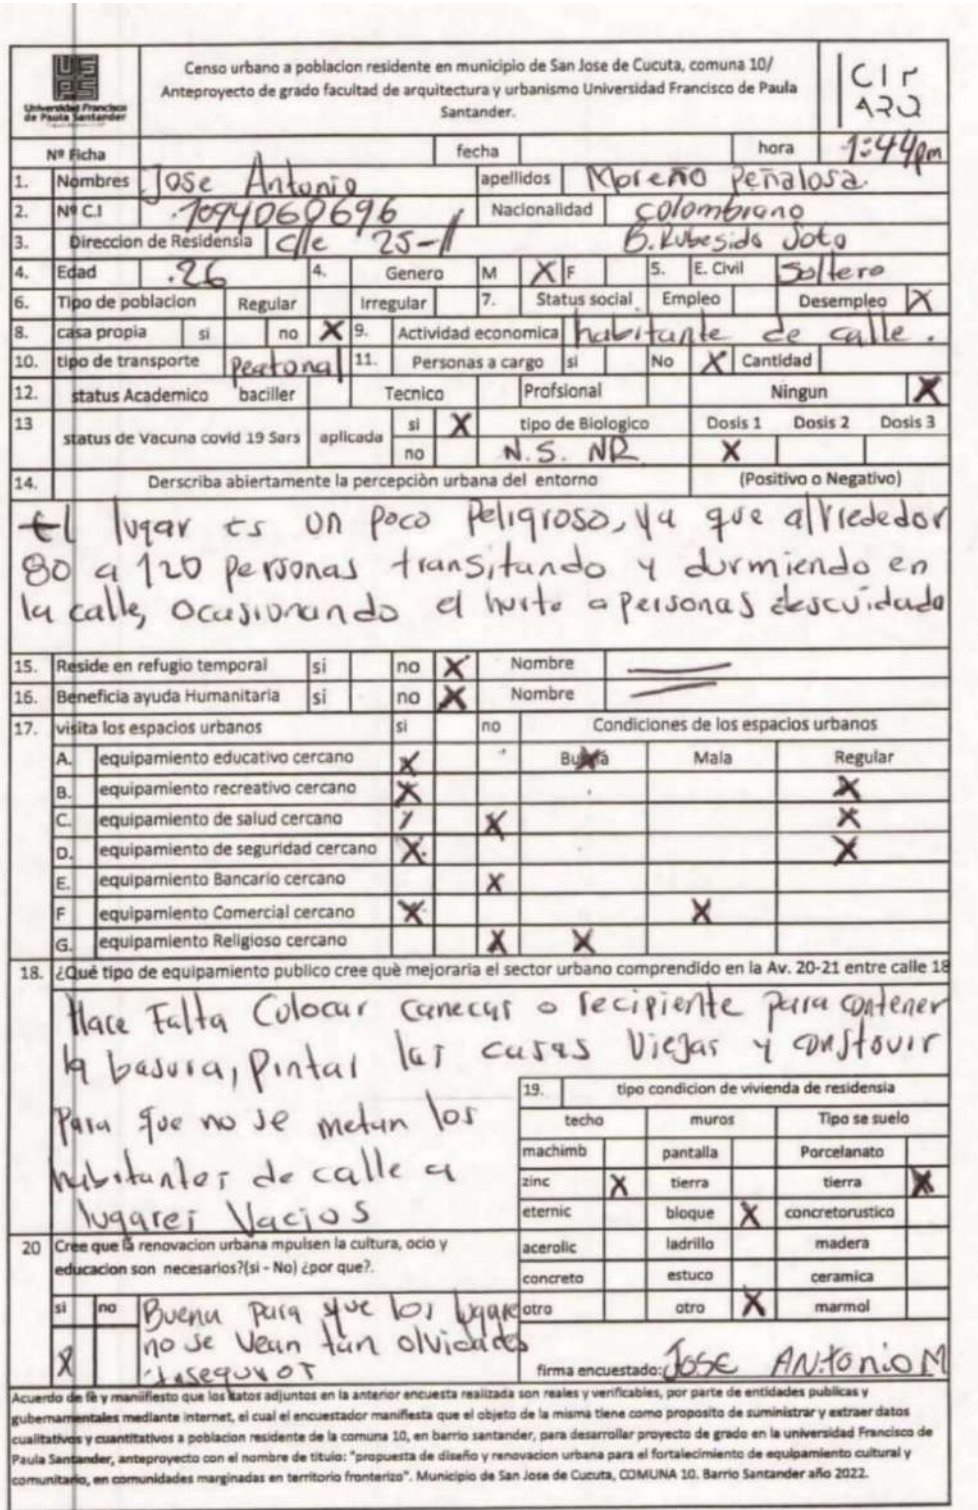 UF
PS
Universidad Francisco
de Paula Santander
Censo urbano a poblacion residente en municipio de San Jose de Cucuta, comuna 10/
Anteproyecto de grado facultad de arquitectura y urbanismo Universidad Francisco de Paula
Santander.
CIr
ARQ
Nº Ficha fecha hora 1:44pm
1. Nombres Jose Antonio apellidos Moreño Peñalosa.
2. Nº C.I .1094060696 Nacionalidad colombiano
3. Direccion de Residensia Clle 25-11 B. Rubesido Soto
4. Edad .26 4. Genero M X F 5. E. Civil Soltero
6. Tipo de poblacion Regular Irregular 7. Status social Empleo Desempleo X
8. casa propia si no X 9. Actividad economica habitante de calle.
10. tipo de transporte Peatonal 11. Personas a cargo si No X Cantidad
12. status Academico baciller Tecnico Profsional Ningun X
13 status de Vacuna covid 19 Sars aplicada si X tipo de Biologico Dosis 1 Dosis 2 Dosis 3
no N.S. NR X
14. Derscriba abiertamente la percepciòn urbana del entorno (Positivo o Negativo)
El lugar es un poco Peligroso, ya que alrrededor
80 a 120 personas transitando y durmiendo en
la calle, ocasionando el hurto a personas descuidada
15. Reside en refugio temporal si no X Nombre
16. Beneficia ayuda Humanitaria si no X Nombre
17. visita los espacios urbanos si no Condiciones de los espacios urbanos
A. equipamiento educativo cercano X Buena Mala Regular
B. equipamiento recreativo cercano X X
C. equipamiento de salud cercano X X
D. equipamiento de seguridad cercano X X
E. equipamiento Bancario cercano X
F equipamiento Comercial cercano X X
G. equipamiento Religioso cercano X X
18. ¿Qué tipo de equipamiento publico cree què mejoraria el sector urbano comprendido en la Av. 20-21 entre calle 18
Hace Falta Colocar canecas o recipiente para contener
la basura, Pintar las casas Viejas y construir
Para que no se metan los
habitantes de calle a
lugares Vacios
19. tipo condicion de vivienda de residensia
techo muros Tipo se suelo
machimb pantalla Porcelanato
zinc X tierra tierra X
eternic bloque X concretorustico
acerolic ladrillo madera
concreto estuco ceramica
otro otro X marmol
20 Cree que la renovacion urbana mpulsen la cultura, ocio y
educacion son necesarios?(si - No) ¿por que?.
si no Buena Para que los lugare
X no se Vean tan olvidados
inseguros
firma encuestado: JOSE ANTonio M
Acuerdo de fè y maniifiesto que los datos adjuntos en la anterior encuesta realizada son reales y verificables, por parte de entidades publicas y
gubernamentales mediante internet, el cual el encuestador manifiesta que el objeto de la misma tiene como proposito de suministrar y extraer datos
cualitativos y cuantitativos a poblacion residente de la comuna 10, en barrio santander, para desarrollar proyecto de grado en la universidad Francisco de
Paula Santander, anteproyecto con el nombre de titulo: "propuesta de diseño y renovacion urbana para el fortalecimiento de equipamiento cultural y
comunitario, en comunidades marginadas en territorio fronterizo". Municipio de San Jose de Cucuta, COMUNA 10. Barrio Santander año 2022.